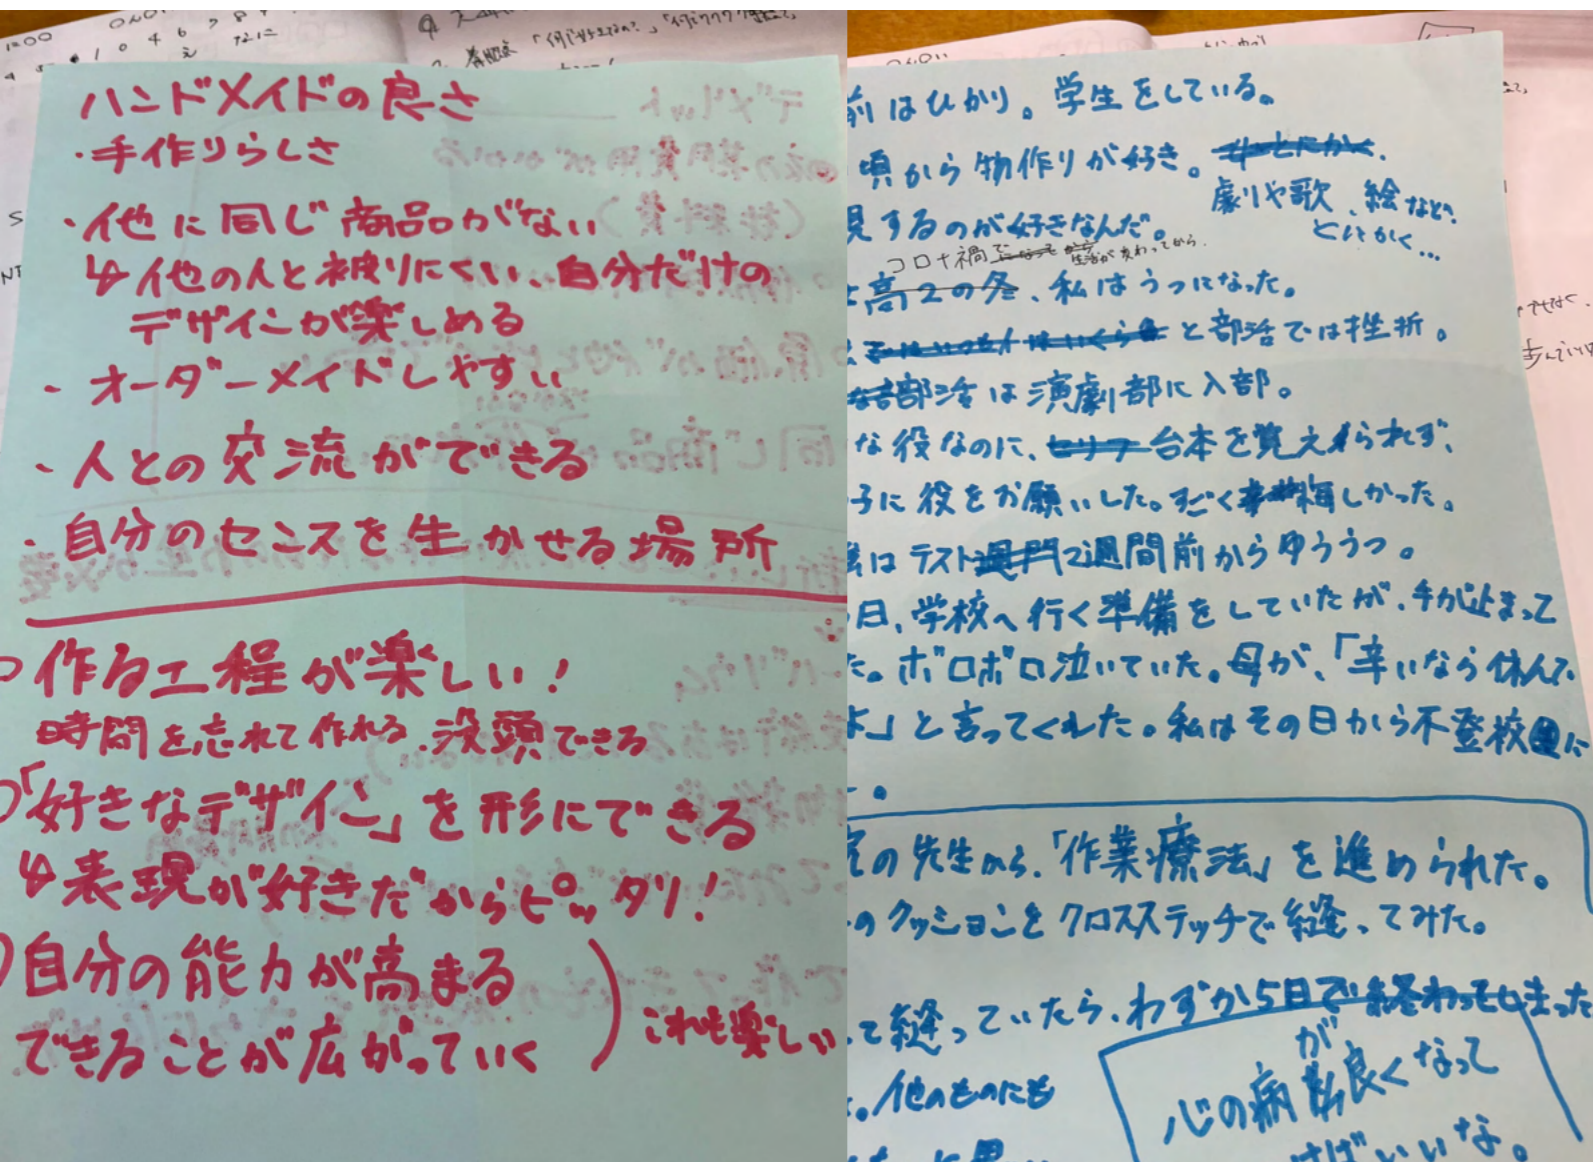 ハンドメイドの良さ
・手作りらしさ
・他に同じ商品がない
↳他の人と被りにくい、自分だけの
デザインが楽しめる
・オーダーメイドしやすい
・人との交流ができる
・自分のセンスを生かせる場所
○作る工程が楽しい!
時間を忘れて作れる、没頭できる
○「好きなデザイン」を形にできる
↳表現が好きだからピッタリ!
○自分の能力が高まる
できることが広がっていく
これも楽しい
前はひかり。学生をしている。
頃から物作りが好き。
劇や歌、絵など、
とにかく…
見するのが好きなんだ。
コロナ禍で生活が変わってから、
高2の冬、私はうつになった。
と部活では挫折。
部活は演劇部に入部。
な役なのに、セリフ台本を覚えられず、
子に役をお願いした。すごく悔しかった。
はテスト週間2週間前からゆううつ。
日、学校へ行く準備をしていたが、手が止まって
た。ボロボロ泣いていた。母が、「辛いなら休んで
よ」と言ってくれた。私はその日から不登校に
。
の先生から、「作業療法」を進められた。
のクッションをクロスステッチで縫ってみた。
て縫っていたら、わずか5日で終わってしまった
。他のものにも
心の病が良くなって
いけばいいな。